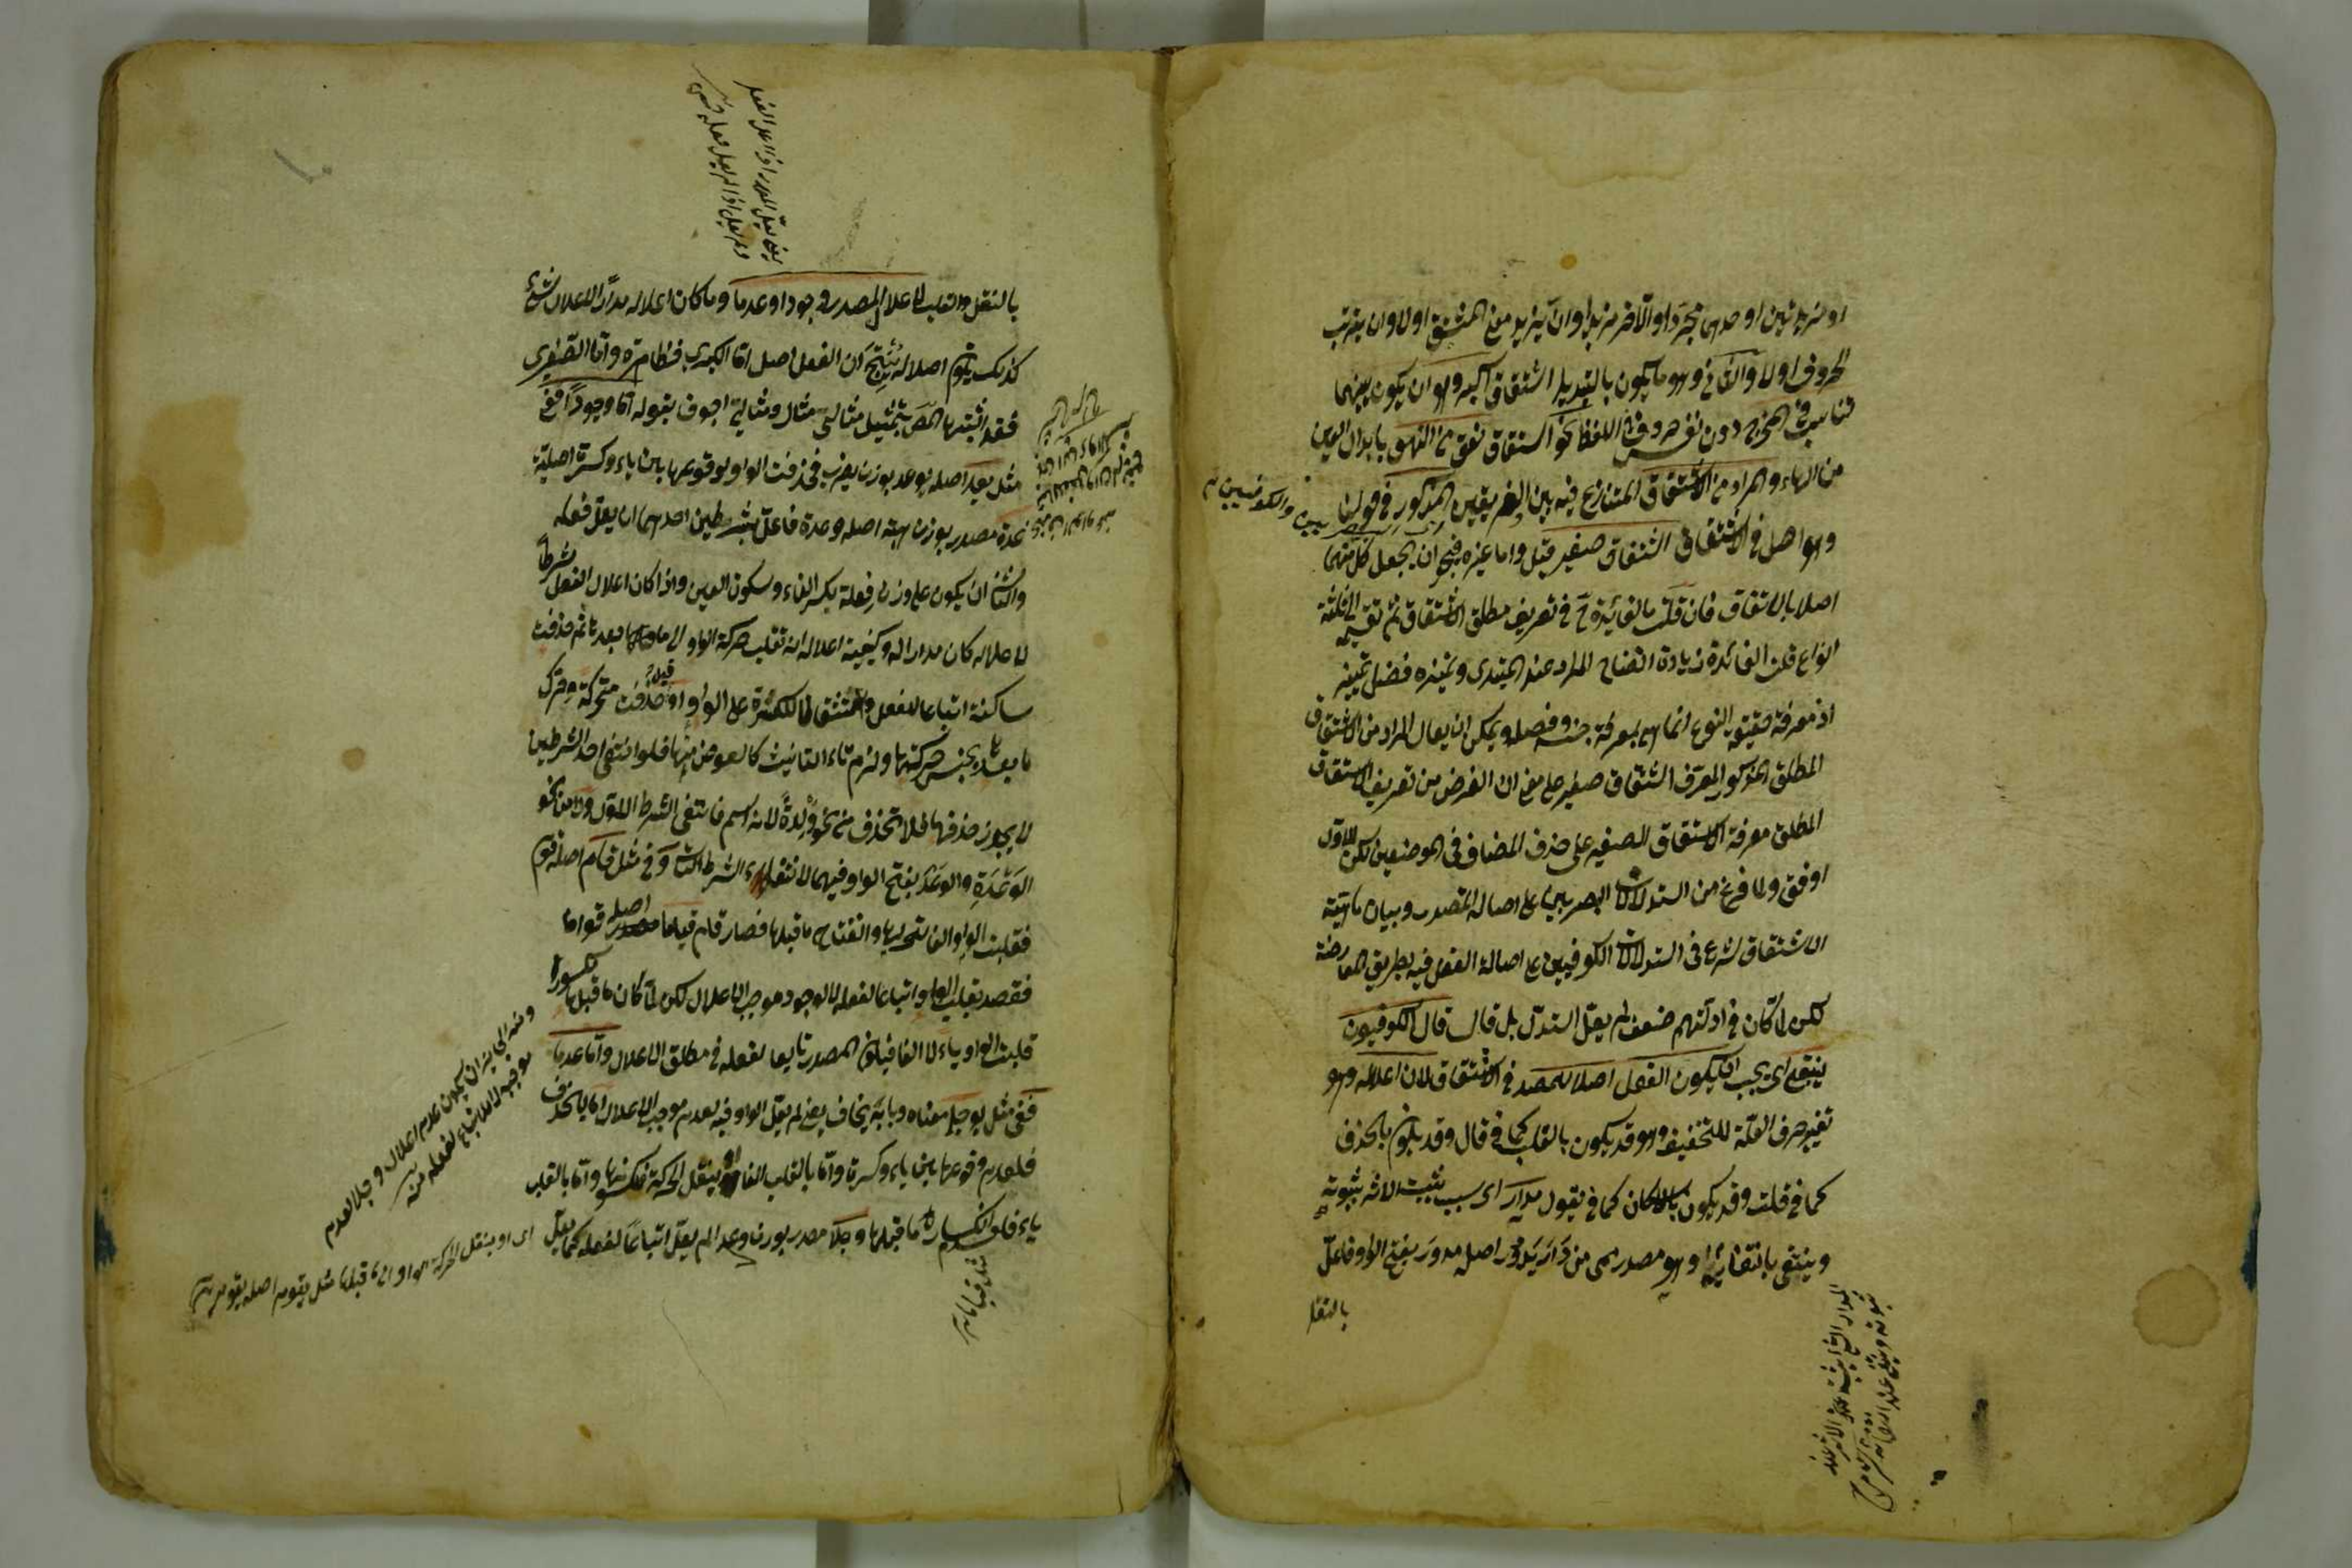 او مزيدتين او احدهما مجردا والآخر مزيدا وان يزيد معنى المشتق اولا وان يترتب
الحروف اولا والثانى وهو ما يكون بالتبديل اشتقاق اكبر وهو ان يكون بينهما
تناسب فى المخرج دون نفس حروف اللفظ نحو اشتقاق نعق من النهق بابدال العين
من الهاء والمراد من الاشتقاق المتنازع فيه بين الفريقين المذكور فى قولنا
وهو اصل فى الاشتقاق اشتقاق صغير قيل واما غيره فيجوز ان يجعل كل منهما
اصلا بالاتفاق فان قلت ما الفائدة ح فى تعريف مطلق الاشتقاق ثم تقسيمه الى ثلثة
انواع قلت الفائدة زيادة اتضاح المراد عند المبتدى وتميزه فضل تمييز
اذ معرفة حقيقة النوع انما هى بمعرفة جنسه وفصله ويمكن ان يقال المراد من الاشتقاق
المطلق المذكور المعرف اشتقاق صغير على معنى ان الغرض من تعريف الاشتقاق
المطلق معرفة الاشتقاق الصغير على حذف المضاف فى الموضعين لكن الاول
اوفق ولما فرغ من استدلالات البصريين على اصالة المصدر وبيان ماهية
الاشتقاق شرع فى استدلالات الكوفيين على اصالة الفعل فيه بطريق المعارضة
لكن لما كان فى ادلتهم ضعف لم يقل استدل بل قال قال الكوفيون
ينبغى اى يجب ان يكون الفعل اصلا للمصدر فى الاشتقاق لان اعلاله وهو
تغيير حرف العلة للتخفيف وهو قد يكون بالقلب كما فى قال وقد يكون بالحذف
كما فى قلت وقد يكون بالاسكان كما فى يقول مدار اى سبب يثبت الاثر بثبوته
وينتفى بانتفائه وهو مصدر ميمى من دار يدور اصله مدور بفتح الواو فاعل
بالنقل
بالنقل والقلب لاعلال المصدر وجودا وعدما وما كان اعلاله مدارا لاعلال شئ
كذلك يكون اصلا له ينتج ان الفعل اصل اما الكبرى فظاهرة واما الصغرى
فقد اثبتها المص بتمثيل مثالى مثال ومثالى اجوف بقوله اما وجودا ففى
مثل يعد اصله يوعد بوزن يضرب فحذفت الواو لوقوعها بين ياء وكسرة اصلية
عدة مصدر بوزن هبة اصله وعدة فاعل بشرطين احدهما ان يعل فعله
والثانى ان يكون على وزن فعلة بكسر الفاء وسكون العين واذا كان اعلال الفعل شرطا
لاعلاله كان مدارا له وكيفية اعلاله ان تقلب حركة الواو الى ما بعدها ثم حذفت
ساكنة اتباعا للفعل واستثقالا للكسرة على الواو او حذفت متحركة وحرك
ما بعدها بجنس حركتها ولزم تاء التانيث كالعوض منها فلو انتفى احد الشرطين
لا يجوز حذفها فلا تحذف من نحو ولدة لانه اسم فانتفى الشرط الاول ولا من نحو
الوعدة والوعد بفتح الواو فيهما لانتفاء الشرط الثانى وفى مثل قام اصله قوم
فقلبت الواو الفا لتحركها وانفتاح ما قبلها فصار قام قياما اصله قواما
فقصد بقلب الواو اتباعا لفعله لا لوجود موجب الاعلال لكن لما كان ما قبلها مكسورا
قلبت الواو ياء لا الفا فيكون المصدر تابعا لفعله فى مطلق الاعلال واما عدما
ففى مثل يوجل معناه وبابه يخاف يعنى لم يعل الواو فيه لعدم موجب الاعلال اما بالحذف
فلعدم وقوعها بين ياء وكسرة واما بالقلب الفا او بنقل الحركة فلسكونها واما بالقلب
ياء فلعدم انكسار ما قبلها وجلا مصدر بوزن وعدا لم يعل اتباعا لفعله كما يعل
يعنى يعل المصدر اذا اعل الفعل
ولم يعل اذا لم يعل فعله
والكوفيين
وجلا لعدم
موجبه لا لاتباع لفعله منه
اى او بنقل الحركة الواو الى ما قبلها مثل يقوم اصله يقوم